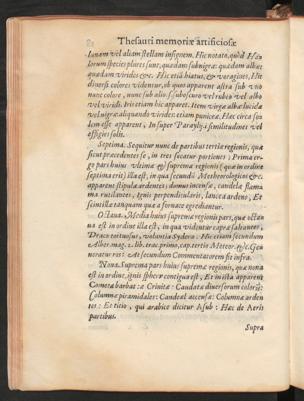 Thesauri memoriæ artificiosæ
lanam vel aliam stellam insignem. Hic notata, quòd Ha
lorum species plures sunt, quædam subnigræ quædam albæ
quædam viridis &c. Hic etiā hiatus, & voragines, Hic
diversi colores videntur, ab quos apparent astra sub
nunc colore, nunc sub alio
vel viridi. Iris etiam hic apparet. Item virgæ albæ lucidæ
vel nigræ aliquando virides: etiam puniceæ. Hæc circa so
lem esse apparent, In super Parayly. i. similitudines vel
effigies solis.
Septima. Sequitur nunc de partibus tertiæ regionis, quæ
sicut præcedentes se, in tres secatur portiones; Prima er-
go pars huius vltimæ & supremæ regionis (quæ in ordine
septima erit) illa est, in qua secundū Metheorologicos &c.
apparent stipulæ ardentes: domus incensæ, candelæ flam̄a
mæ rutilantes, Ignis perpendicularis, lanceæ ardens, Et
scintillæ tanquam quæ à fornace egrediantur.
Octaua. Media huius supremæ regionis pars, quæ octa
ua est in ordine illa est, in qua vidētur capræ saltantes,
Draco tortuosus, volantia Sydera: Hic etiam secundum
Alber. mag. 2. lib. trac. primo, cap. tertio Meteor. &c. Ge
neratur ros: At secundum Commentatorem fit infra.
Nona. Suprema pars huius supremæ regionis, quæ nona
est in ordine, ignis sphæræ contigua est, Et in illa apparent
Cometæ barbatæ: Crinitæ: Caudatæ diuersorum colorū:
Columnæ piramidales: Candelæ accensæ: Columnæ arden
tes: Et titio, qui arabicè dicitur Asub: Hæc de Aeris
partibus.
Supra